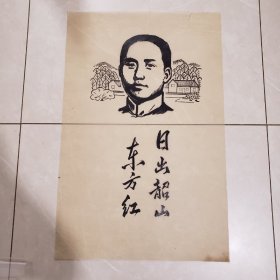 日出韶山
东方红